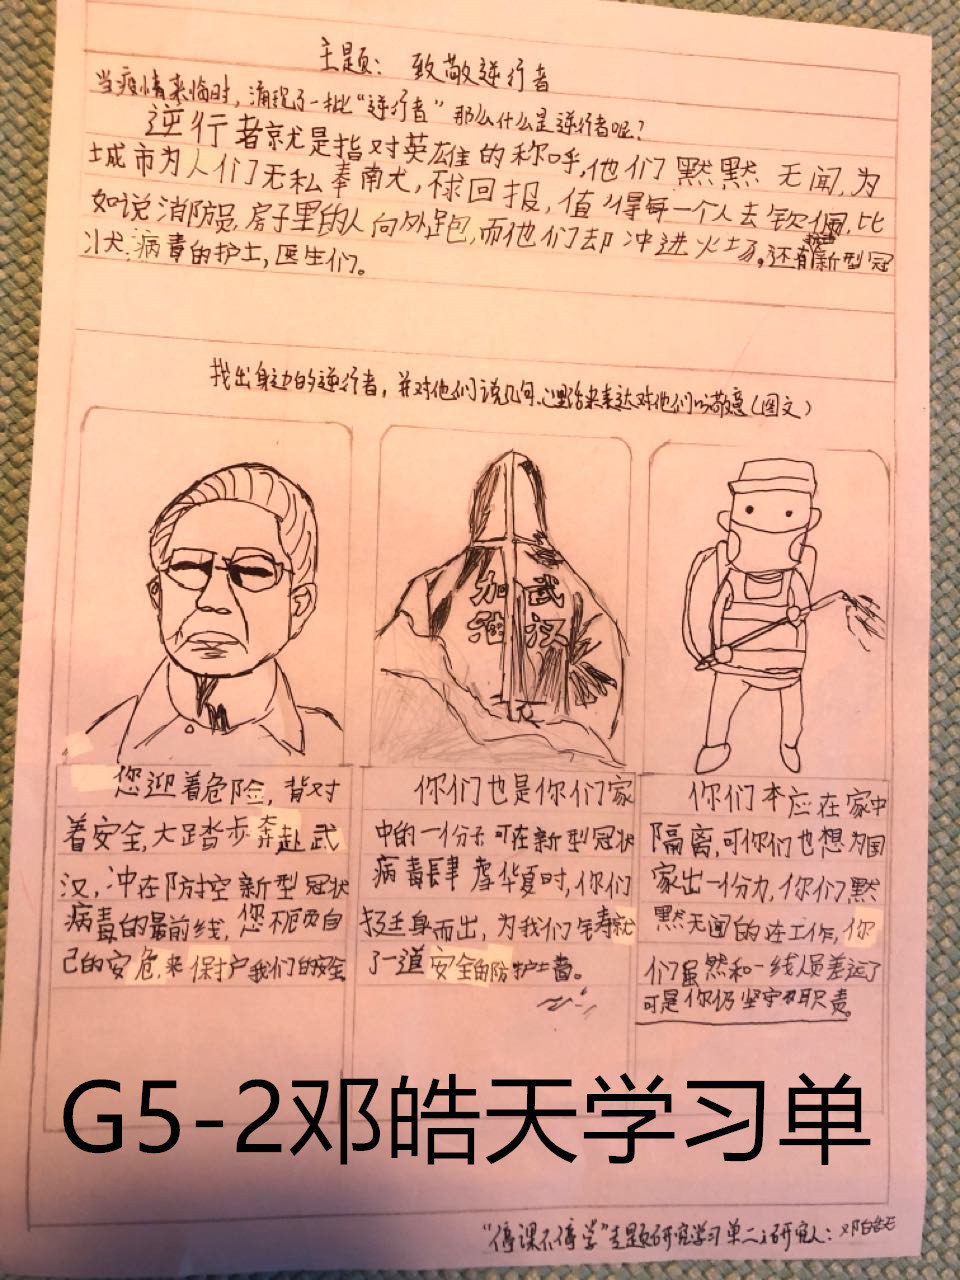 主题：致敬逆行者
当疫情来临时，涌现了一批“逆行者”那么什么是逆行者呢？
逆行者就是指对英雄的称呼，他们默默无闻，为
城市为人们无私奉献，不求回报，值得每一个人去钦佩，比
如说消防员，房子里的人向外跑，而他们却冲进火场。还有新型冠
状病毒的护士，医生们。
找出身边的逆行者，并对他们说几句心里话来表达对他们的敬意（图文）
加油 武汉
您迎着危险，背对
着安全，大踏步奔赴武
汉，冲在防控新型冠状
病毒的最前线，您不顾自
己的安危，来保护我们的安全
你们也是你们家
中的一份子可在新型冠状
病毒肆虐华夏时，你们
挺身而出，为我们铸就
了一道安全的防护墙。
你们本应在家中
隔离，可你们也想为国
家出一份力，你们默
默无闻的在工作，你
们虽然和一线人员差远了
可是你仍坚守职责。
G5-2邓皓天学习单
“停课不停学”主题研究学习单二 研究人：邓皓天